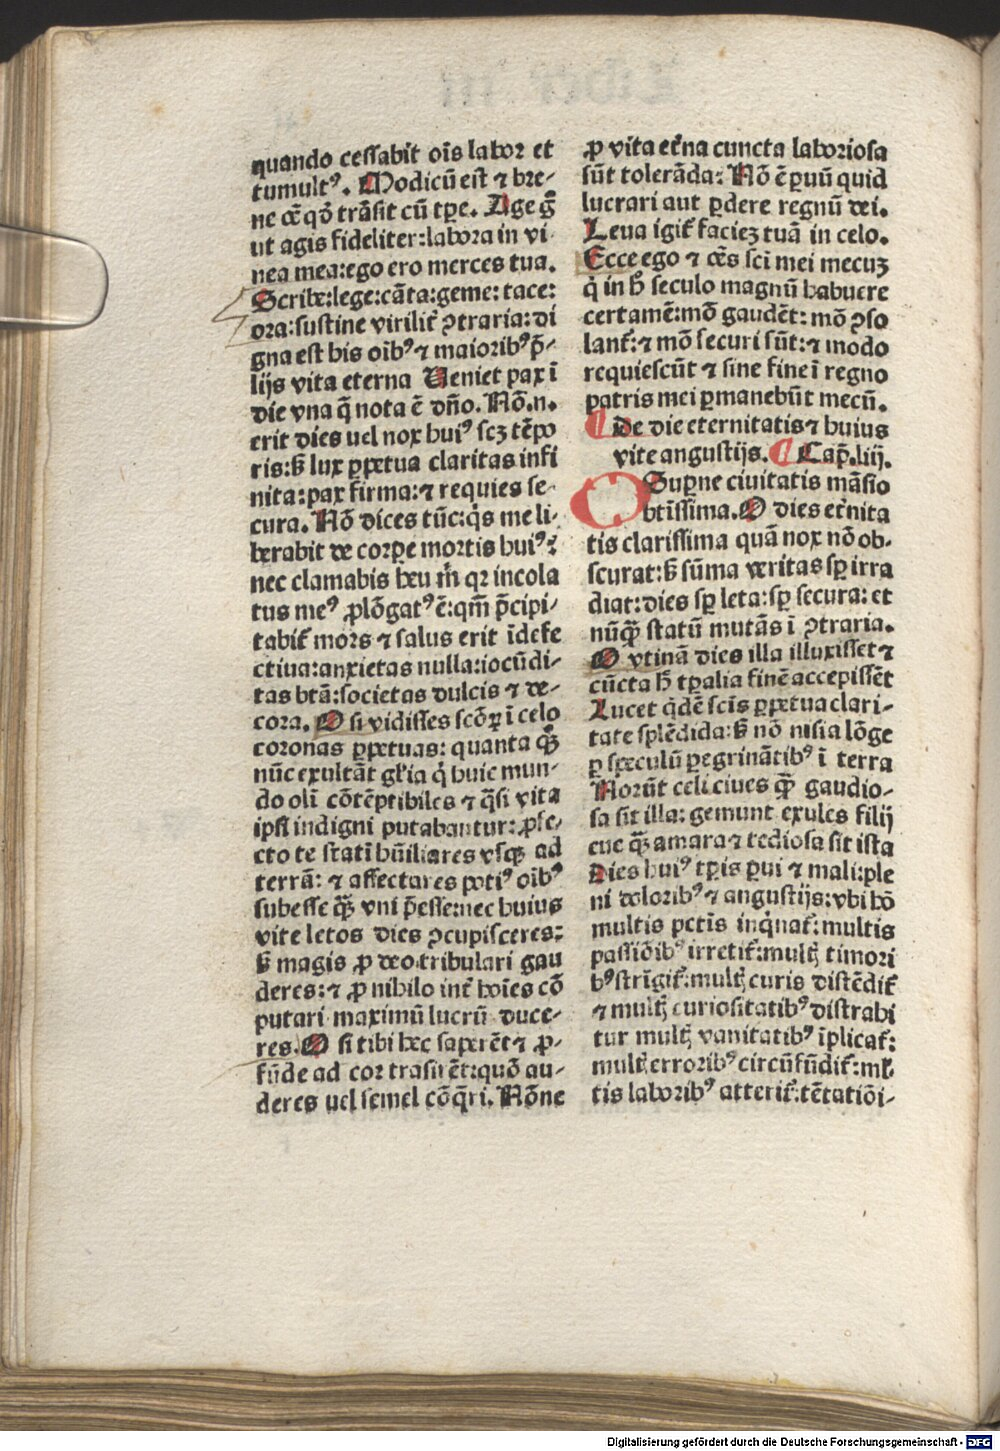 quando cessabit oīs labor et
tumultꝰ. Modicū est ⁊ bre-
ne oē qḋ trāsit cū tꝑe. Age g̊
ut agis fideliter: labora in vi-
nea mea: ego ero merces tua.
Scribe: lege: cāta: geme: tace:
ora: sustine viriliť ꝯtraria: di
gna est his oībꝰ ⁊ maioribꝰ p̄-
lijs vita eterna Ueniet pax ī
die vna q̄ nota ē dño. Nō .n.
erit dies uel nox huiꝰ scꝫ tēpo
ris: ß lux ꝑpetua claritas infi
nita: pax firma: ⁊ requies se-
cura. Nō dices tūc: q̇s me li-
berabit de corꝑe mortis huiꝰ:
nec clamabis heu m̄ qꝛ incola
tus meꝰ ꝓlōgatꝰ ē: qm̄ p̄cipi-
tabiť mors ⁊ salus erit īdefe
ctiua: anxietas nulla: iocūdi-
tas btā: societas dulcis ⁊ de-
cora. O si vidisses scōꝝ ī celo
coronas ꝑpetuas: quanta qꝫ
nūc exultāt gl'ia q̇ huic mun-
do olī cōtēptibiles ⁊ q̄si vita
ipsi indigni putabantur: ꝓfe-
cto te statī hūiliares vsqꝫ ad
terrā: ⁊ affectares potiꝰ oībꝰ
subesse qꝫ̄ vni p̄esse: nec huius
vite letos dies ꝯcupisceres:
ß magis ꝓ deo tribulari gau
deres: ⁊ ꝓ nihilo inť hoīes cō
putari maximū lucrū duce-
res. O si tibi hec saperēt ⁊ ꝓ-
fūde ad cor trāsirēt: quō au-
deres uel semel cōq̄ri. Nōne
ꝓ vita eťna cuncta laboriosa
sūt tolerāda: Nō ē ꝑuū quid
lucrari aut ꝑdere regnū dei.
Leua igiť faciez tuā in celo.
Ecce ego ⁊ oēs sci mei mecuꝫ
q̇ in h̄ seculo magnū habuere
certamē: mō gaudēt: mō ꝯso
lanť: ⁊ mō securi sūt: ⁊ modo
requiescūt ⁊ sine fine ī regno
patris mei ꝑmanebūt mecū.
De die eternitatis ⁊ huius
vite angustijs. Cap̄. liij.
O Suꝑne ciuitatis māsio
btīssima. O dies eťnita
tis clarissima quā nox nō ob-
scurat: ß sūma veritas sꝑ irra
diat: dies sꝑ leta: sꝑ secura: et
nūqꝫ̄ statū mutās ī ꝯtraria.
O vtinā dies illa illuxisset ⁊
cūcta h̄ tꝑalia finē accepissēt
Lucet q̇dē scīs ꝑpetua clari-
tate splēdida: ß nō nisi a lōge
ꝑ speculū ꝑegrinātibꝰ ī terra
Norūt celi ciues qꝫ̄ gaudio-
sa sit illa: gemunt exules filij
eue qꝫ̄ amara ⁊ tediosa sit ista
Dies huiꝰ tꝑis ꝑui ⁊ mali: ple
ni doloribꝰ ⁊ angustijs: vbi hō
multis pctīs inq̇nať: multis
passiōibꝰ irretiť: multꝭ timori
bꝰ strīgiť: multꝭ curis distēdiť
⁊ multꝭ curiositatibꝰ distrahi
tur multꝭ vanitatibꝰ īplicať:
multꝭ erroribꝰ circūfūdiť: ml'
tis laboribꝰ atteriť: tētatiōi-
Digitalisierung gefördert durch die Deutsche Forschungsgemeinschaft - DFG